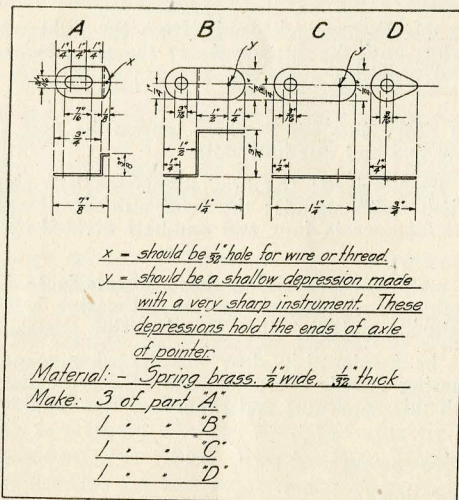 A B C D
1/4" 1/4" 1/4" x y y
7/16" 1/8" 3/16" 1/2" 1/4" 3/16" 3/16"
3/4" 1/2" 1/4" 1/4"
3/8" 1/4" 3/4"
7/8" 1 1/4" 1 1/4" 3/4"
x = should be 1/32" hole for wire or thread.
y = should be a shallow depression made
with a very sharp instrument. These
depressions hold the ends of axle
of pointer.
Material:- Spring brass. 1/2" wide, 1/32" thick
Make: 3 of part "A."
1 " " "B"
1 " " "C"
1 " " "D"